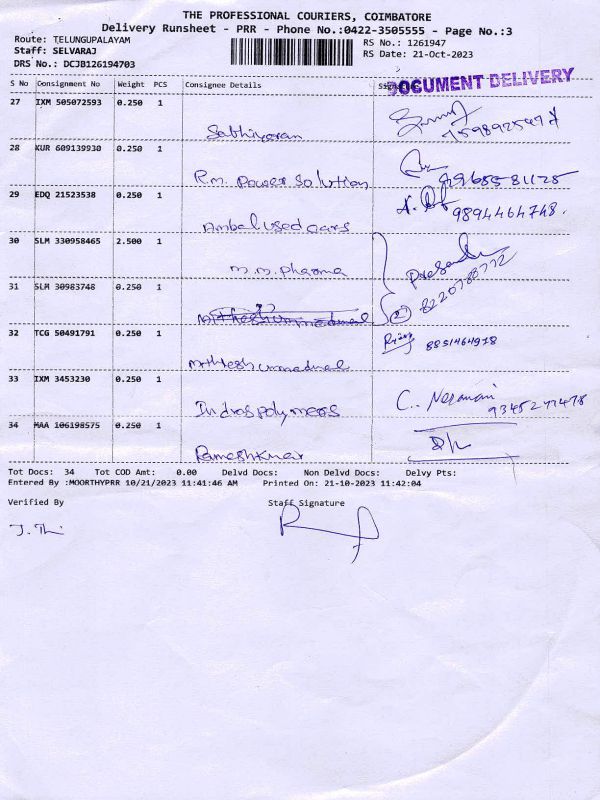 THE PROFESSIONAL COURIERS, COIMBATORE
Delivery Runsheet - PRR - Phone No.:0422-3505555 - Page No.:3
Route: TELUNGUPALAYAM
RS No.: 1261947
Staff: SELVARAJ
RS Date: 21-Oct-2023
DRS No.: DCJB126194703
DOCUMENT DELIVERY
S No Consignment No Weight PCS Consignee Details
27 IXM 505072593 0.250 1
28 KUR 609139930 0.250 1
R.M. Power Solution
29 EDQ 21523538 0.250 1
9894464748.
Ambal used cars
30 SLM 330958465 2.500 1
M.M. Pharma
31 SLM 30983748 0.250 1
8220788772
(2)
32 TCG 50491791 0.250 1
8851464918
33 IXM 3453230 0.250 1
Indros polymers
34 MAA 106198575 0.250 1
Rameshkumar
Tot Docs: 34 Tot COD Amt: 0.00 Delvd Docs: Non Delvd Docs: Delvy Pts:
Entered By :MOORTHYPRR 10/21/2023 11:41:46 AM Printed On: 21-10-2023 11:42:04
Verified By Staff Signature